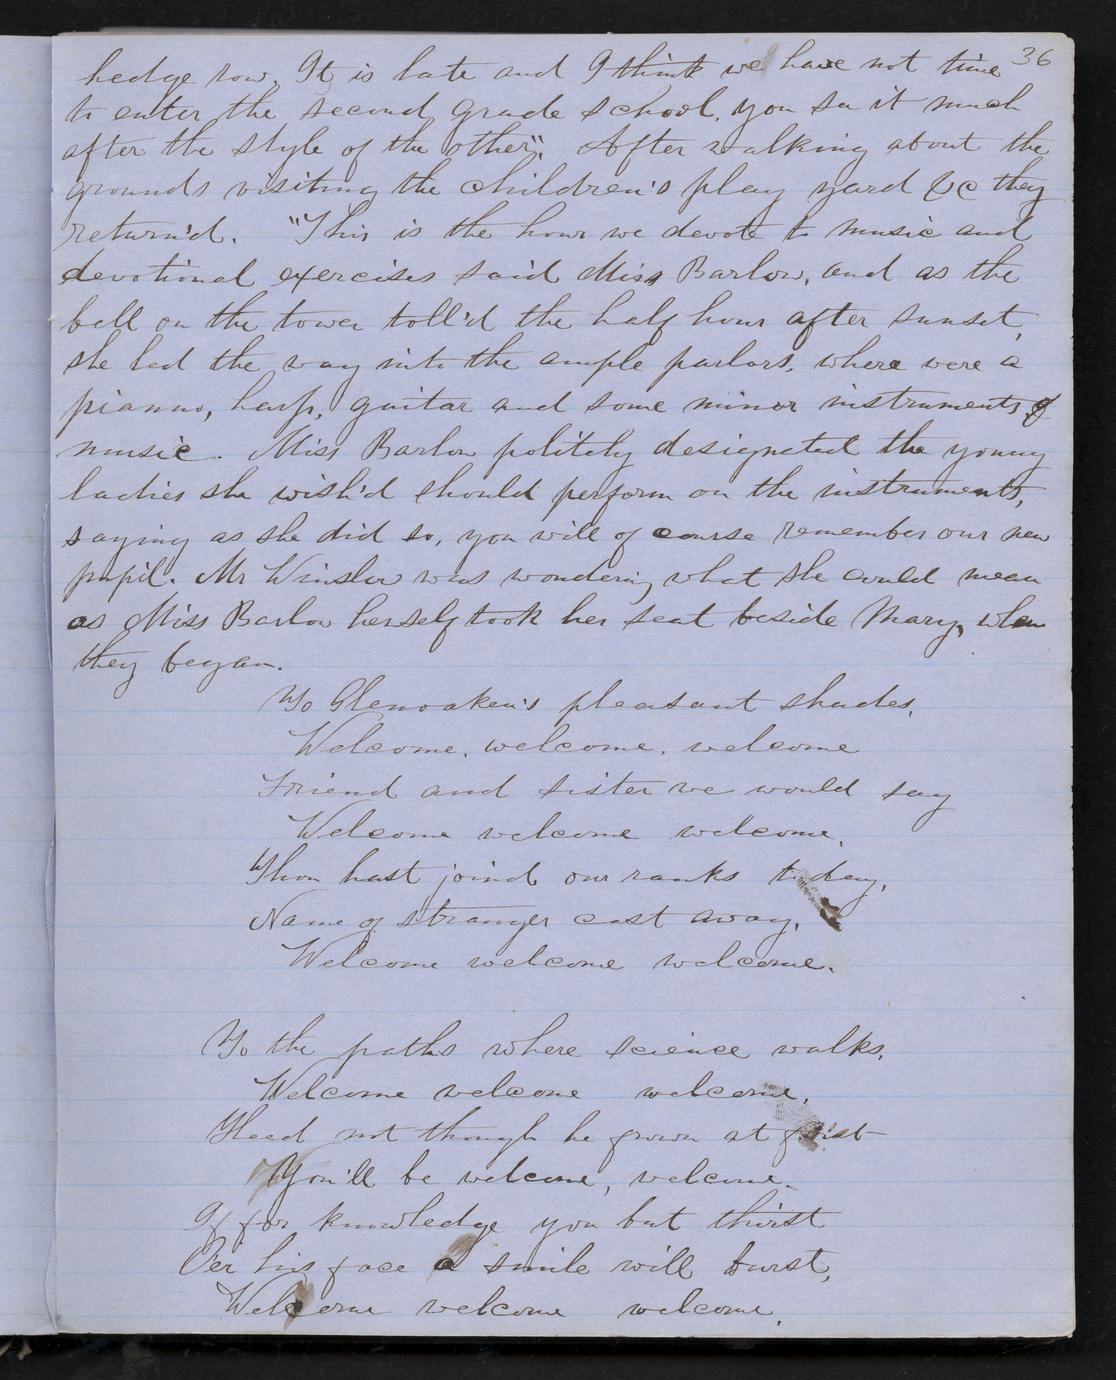 36
hedge row. It is late and I think we have not time
to enter the second grade school, you see it much
after the style of the other". After walking about the
grounds visiting the children's play yard &c they
return'd. "This is the hour we devote to music and
devotional exercises said Miss Barlow, and as the
bell on the tower toll'd the half hour after sunset,
she led the way into the ample parlors, where were a
pianno, harp, guitar and some minor instruments of
music. Miss Barlow politely designated the young
ladies she wish'd should perform on the instruments,
saying as she did so, you will of course remember our new
pupil. Mr Winslow was wondering what she could mean
as Miss Barlow herself took her seat beside Mary, when
they began.
To Glenoaken's pleasant shades,
Welcome, welcome, welcome
Friend and sister we would say
Welcome welcome welcome,
Thou hast joind our ranks today,
Name of stranger cast away,
Welcome welcome welcome.
To the paths where science walks,
Welcome welcome welcome,
Heed not though he frown at first
You'll be welcome, welcome.
If for knowledge you but thirst
O'er his face a smile will burst,
Welcome welcome welcome.